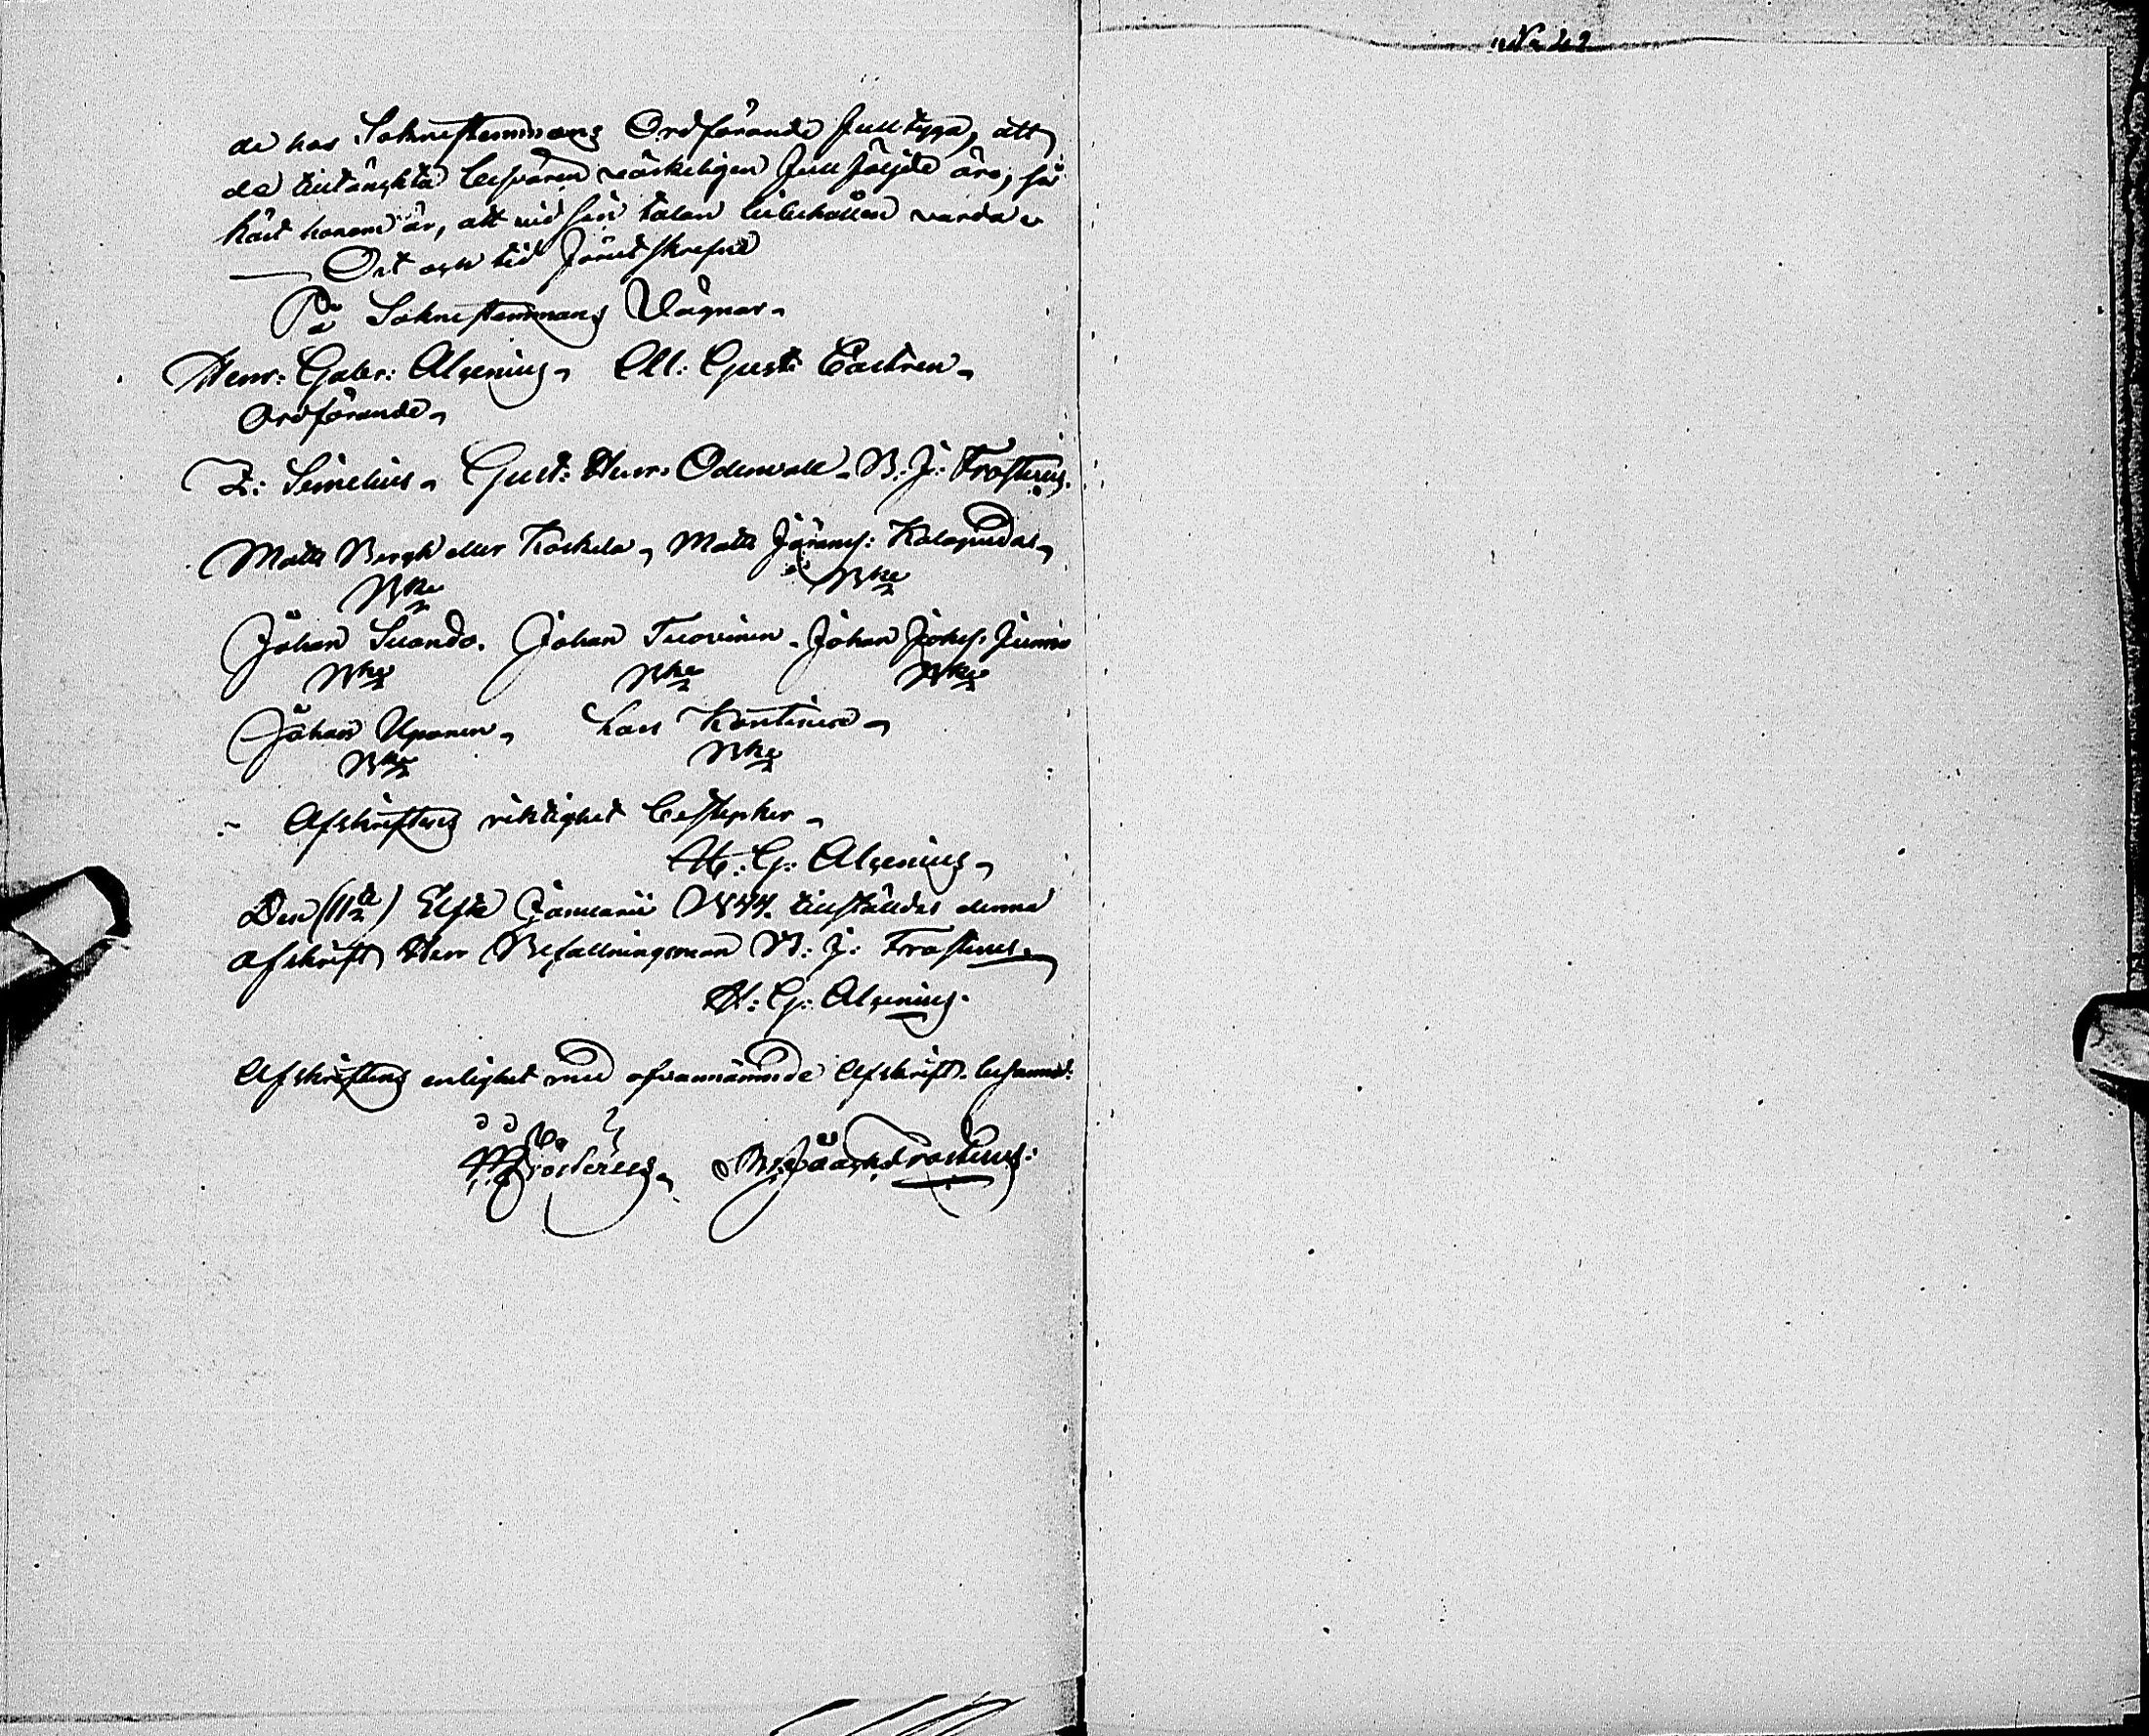 de hos Sokne stemmans Ordförande fulltyga, att
de tilltänckta besvären värkeligen fullföljde äro, så
kärt honom är, att vid sin talan bibehållen varda.
Ort och tid förutskrefne
På Sokne stemmans Vägnar.
Henr: Gabr: Alcenius, Ol: Gust: Castren,
Ordförande,
Z: Simelius, Gust: Henr: Odenvall. B: J: Frosterus.
Matts Bergh eller Koskela, Matts Jörans: Kolapudas,
Bmke Bmke
Johan Suondo. Johan Tuovinen. Johan Johs: Junno
Bmke Bmke Bmke
Johan Uponen, Lars Kontinen,
Bmke Bmke
Afskriftens riktighet bestyrker,
H: G: Alcenius,
Den (11te) Elfte Januarii tillställdes denna
afskrift Herr Befallningsman B: J: Frosterus.
H: G: Alcenius.
Afskriftens enlighet med ofvannämnde Afskrift
Frosterus, Frosterus:
No 42